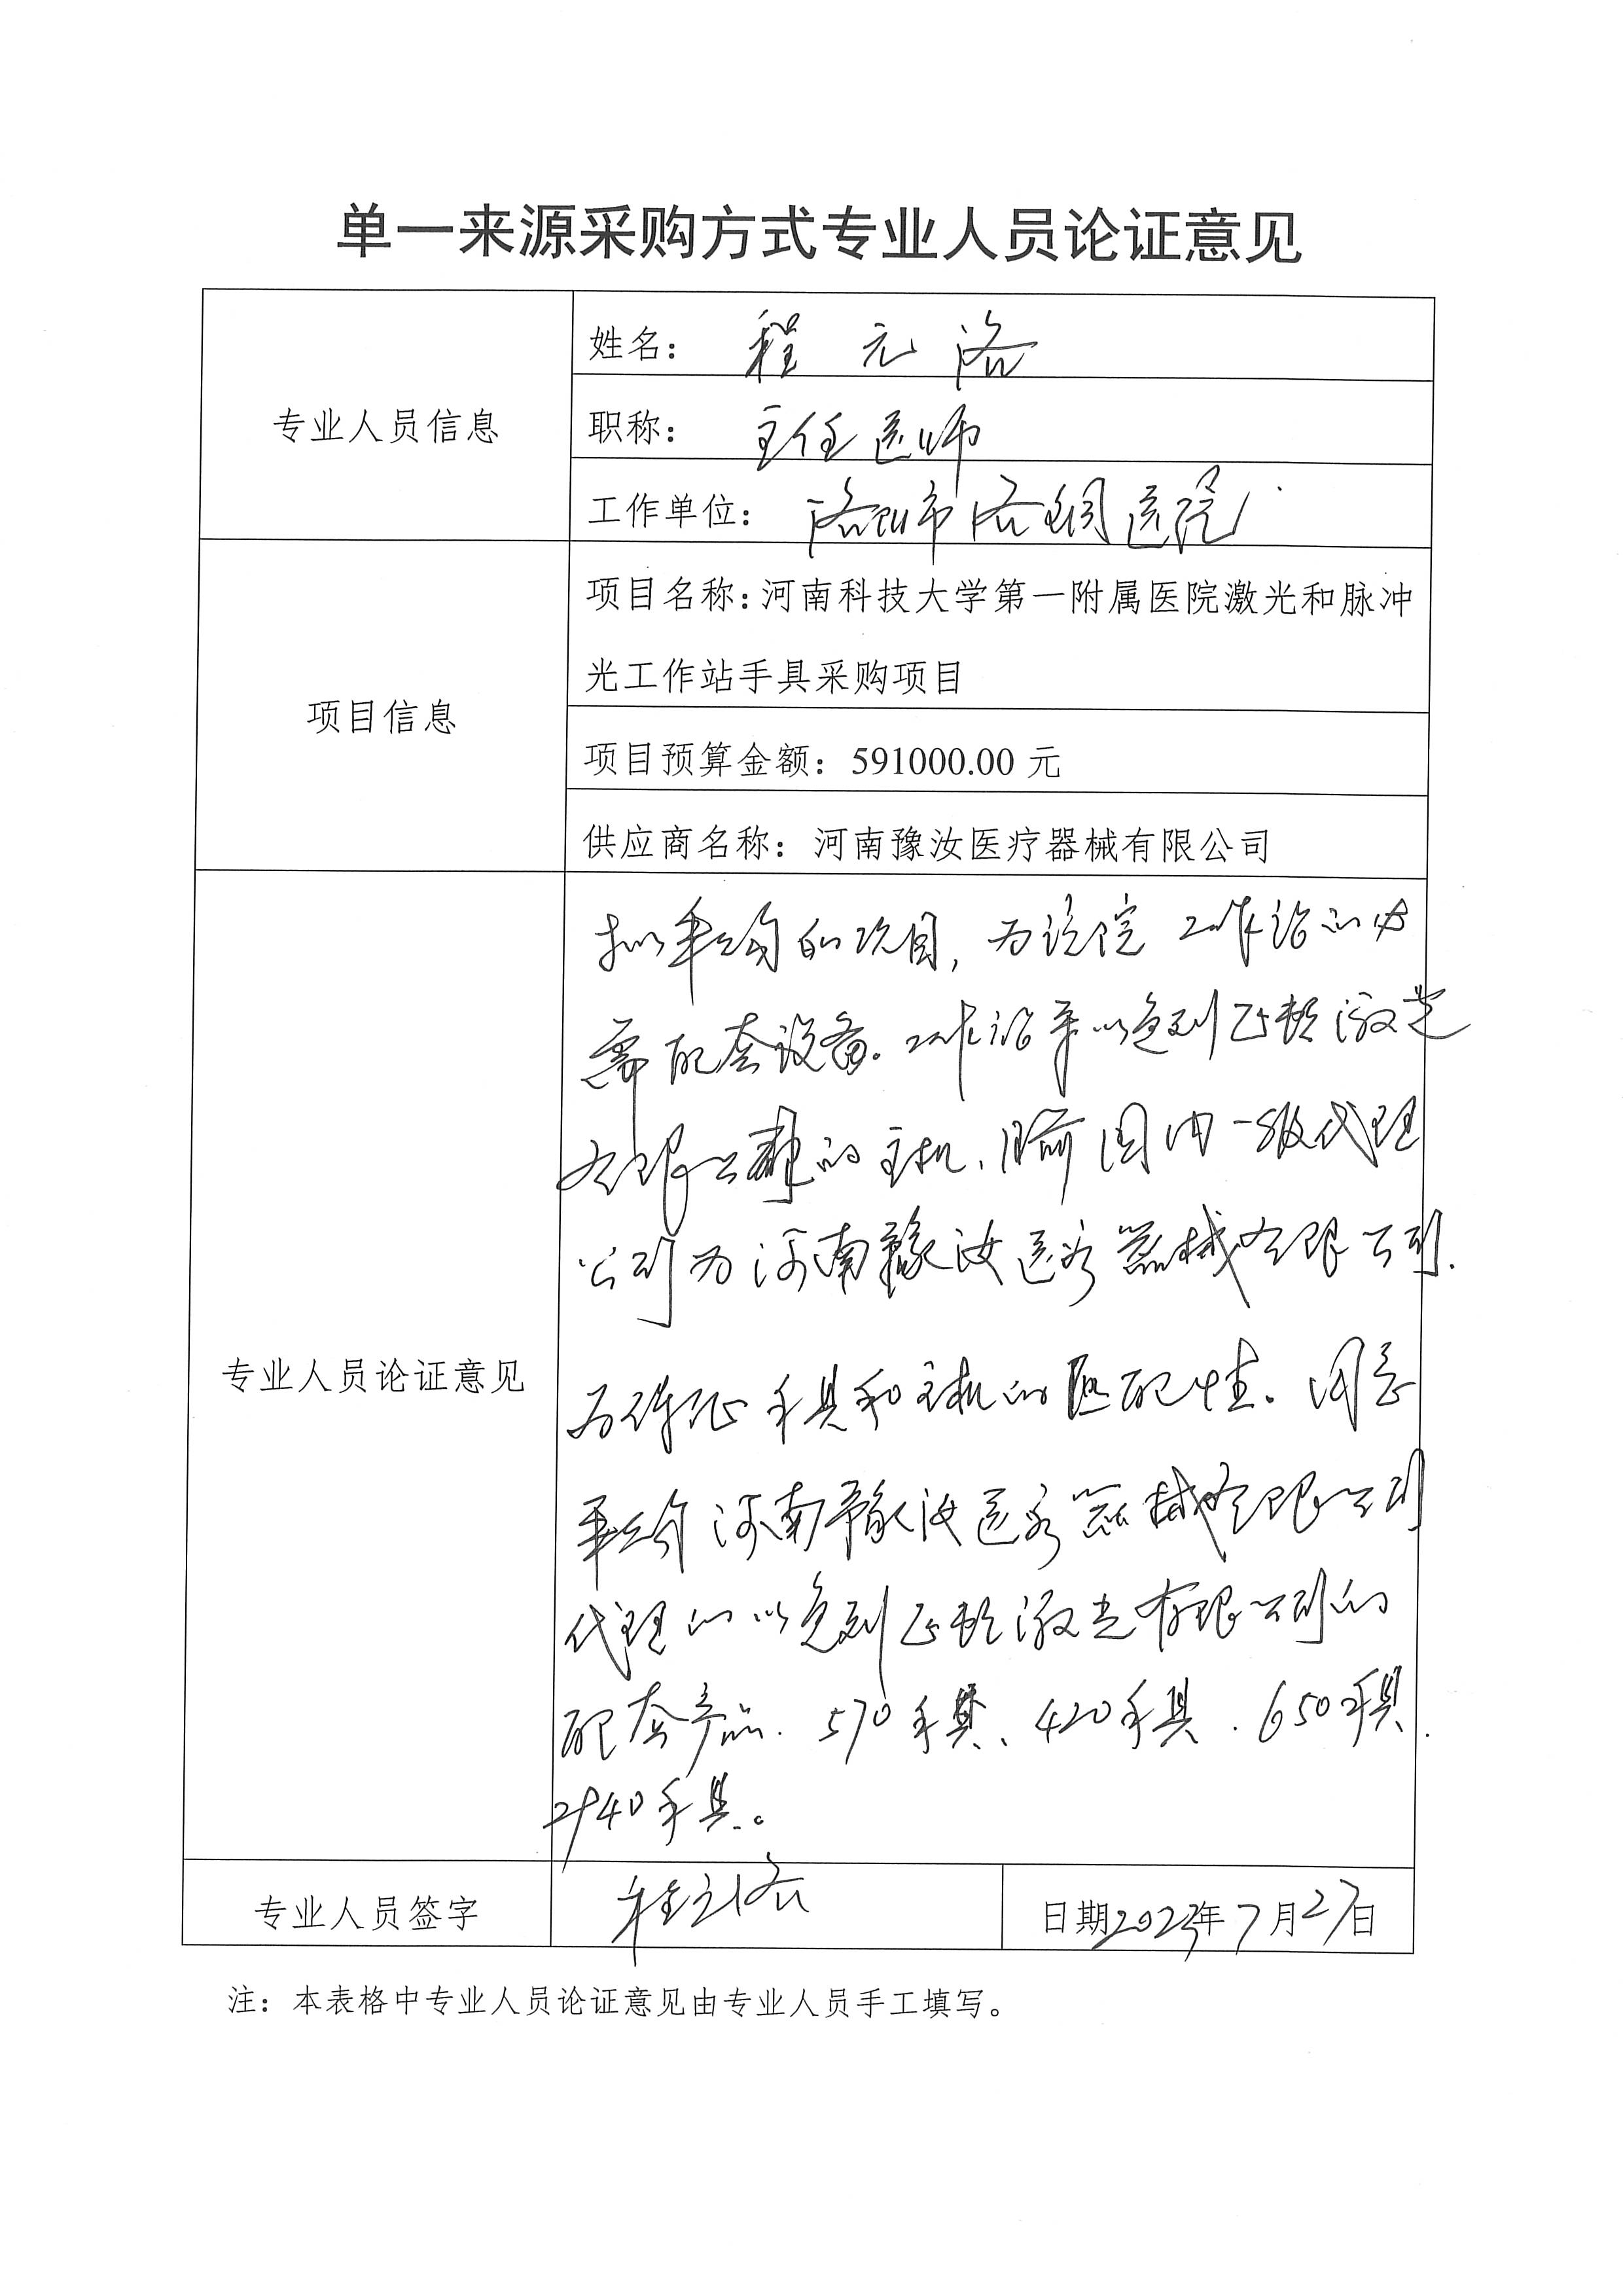 单一来源采购方式专业人员论证意见
专业人员信息
姓名：程元洛
职称：主任医师
工作单位：洛阳市洛铜医院
项目信息
项目名称：河南科技大学第一附属医院激光和脉冲
光工作站手具采购项目
项目预算金额：591000.00 元
供应商名称：河南豫汝医疗器械有限公司
专业人员论证意见
拟采购的项目，为该院工作站的必
需配套设备。工作站采以色列飞顿激光
有限公司的主机、目前国内一级代理
公司为河南豫汝医疗器械有限公司.
为保证手具和主机的匹配性。同意
采购河南豫汝医疗器械有限公司
代理的以色列飞顿激光有限公司的
配套产品. 570手具、420手具. 650手具.
2940手具。
专业人员签字
程元洛
日期2023年7月27日
注：本表格中专业人员论证意见由专业人员手工填写。